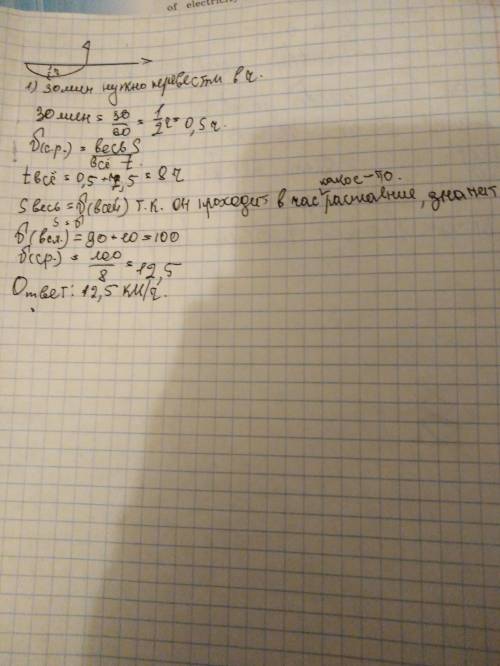 of electricity
1 ч
1) 30 мин нужно перевести в ч.
30 мин = 30/60 = 1/2 ч = 0,5 ч.
v(ср.) = весь S / всё t.
t всё = 0,5 + 7,5 = 8 ч
какое-то.
S весь = v(всей) т.к. он проходит в час расстояние, значит
S = v
v(всл.) = 90 + 10 = 100
v(ср.) = 100/8 = 12,5
Ответ: 12,5 км/ч.